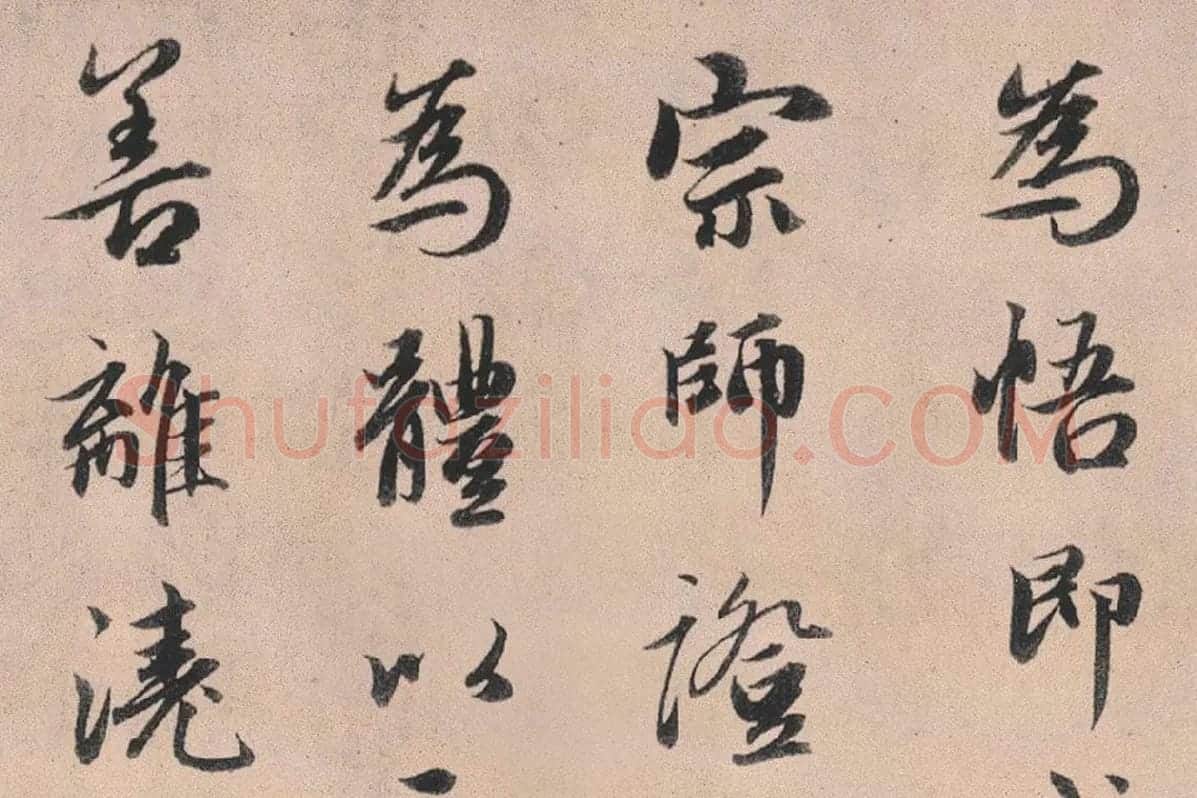 為悟即
宗師證
為體以
善離澆
Shufazilidao.COM